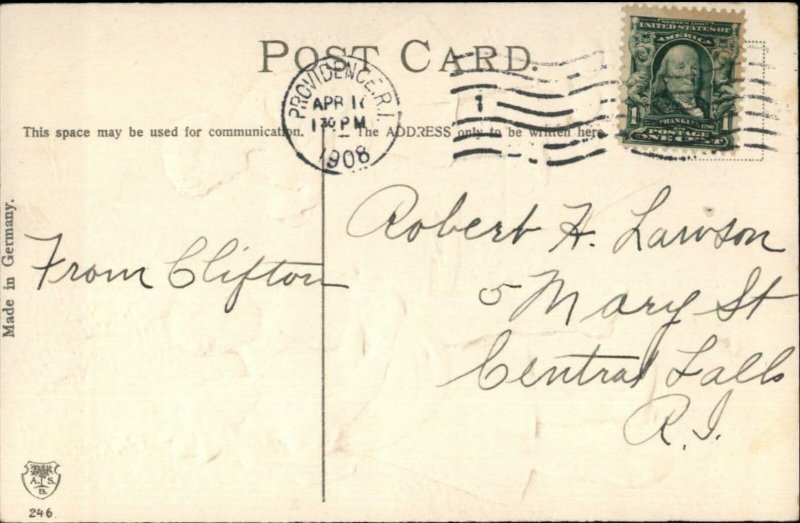 POST CARD.
PROVIDENCE, R.I.
APR 1
1 30 PM
1908
1
SERIES 1902
UNITED STATES OF
AMERICA
FRANKLIN
1790
1 POSTAGE
ONE CENT
This space may be used for communication.
The ADDRESS only to be written here
Made in Germany.
From Clifton
Robert H. Lawson
5 Mary St
Central Falls
R.I.
A. S.
B.
246